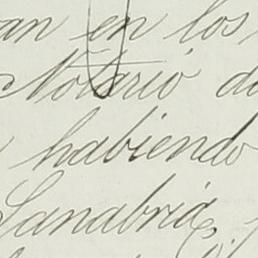 an en los
Notario d
habiendo
Sanabria